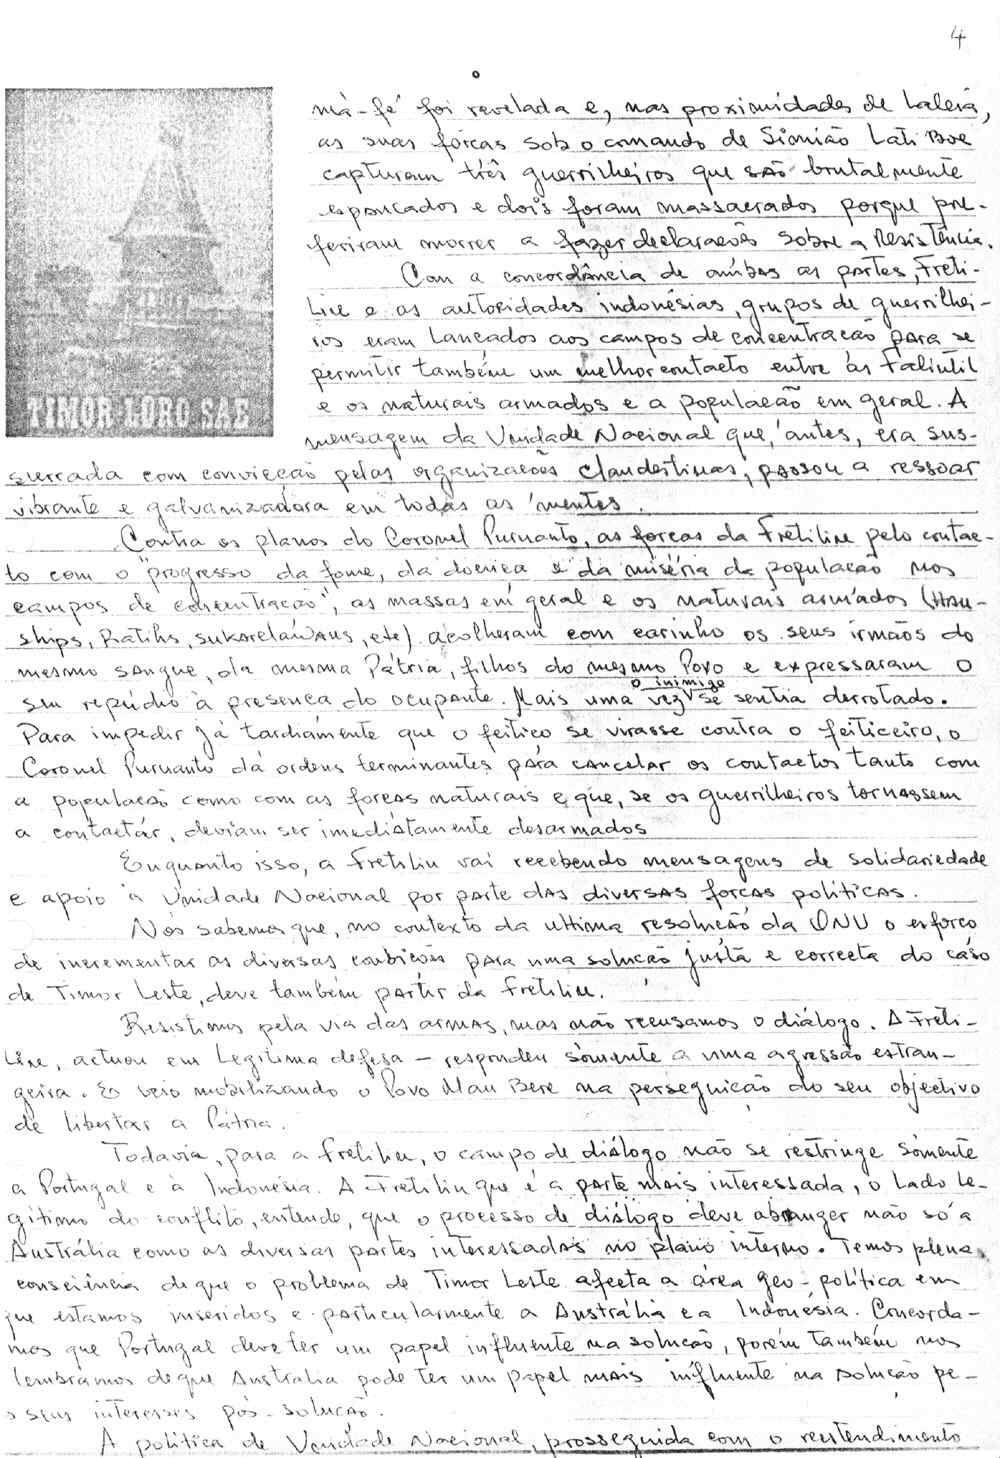 4
má-fé foi revelada e, nas proximidades de Laleia,
as suas forças sob o comando de Simião Lati Boe
capturam três guerrilheiros que são brutalmente
espancados e dois foram massacrados porque pre-
feriram morrer a fazer declarações sobre a Resistência.
Com a concordância de ambas as partes, Freti-
lin e as autoridades indonésias, grupos de guerrilhei-
ros eram lançados aos campos de concentração para se
permitir também um melhor contacto entre as Falintil
e os naturais armados e a população em geral. A
mensagem da Unidade Nacional que, antes, era sus-
surrada com convicção pelas organizações clandestinas, passou a ressoar
vibrante e galvanizadora em todas as mentes.
Contra os planos do Coronel Purwanto, as forças da Fretiline pelo contac-
to com o "progresso da fome, da doença e da miséria da população nos
campos de concentração", as massas em geral e os naturais armados (Han-
ships, Ratihs, sukarelawans, etc) acolheram com carinho os seus irmãos do
mesmo sangue, da mesma Pátria, filhos do mesmo Povo e expressaram o
seu repúdio à presença do ocupante. Mais uma vez o inimigo se sentia derrotado.
Para impedir já tardiamente que o feitiço se virasse contra o feiticeiro, o
Coronel Purwanto dá ordens terminantes para cancelar os contactos tanto com
a população como com as forças naturais e que, se os guerrilheiros tornassem
a contactar, deviam ser imediatamente desarmados
Enquanto isso, a Fretilin vai recebendo mensagens de solidariedade
e apoio à Unidade Nacional por parte das diversas forças políticas.
Nós sabemos que, no contexto da ultima resolução da ONU o esforço
de incrementar as diversas condições para uma solução justa e correcta do caso
de Timor Leste, deve também partir da Fretilin.
Resistimos pela via das armas, mas não recusamos o diálogo. A Freti-
line, actuou em legítima defesa — respondeu sòmente a uma agressão estran-
geira. E veio mobilizando o Povo Mau Bere na perseguição do seu objectivo
de libertar a Pátria.
Todavia, para a Fretilin, o campo de diálogo não se restringe sòmente
a Portugal e à Indonésia. A Fretilin que é a parte mais interessada, o lado le-
gítimo do conflito, entende, que o processo de diálogo deve abranger não só a
Austrália como as diversas partes interessadas no plano interno. Temos plena
consciência de que o problema de Timor Leste afecta a área geo-política em
que estamos inseridos e particularmente a Austrália e a Indonésia. Concorda-
mos que Portugal deve ter um papel influente na solução, porém também nos
lembramos de que Austrália pode ter um papel mais influente na solução pe-
los seus interesses pós-solução.
A política de Unidade Nacional, prosseguida com o reentendimento
TIMOR LORO SAE